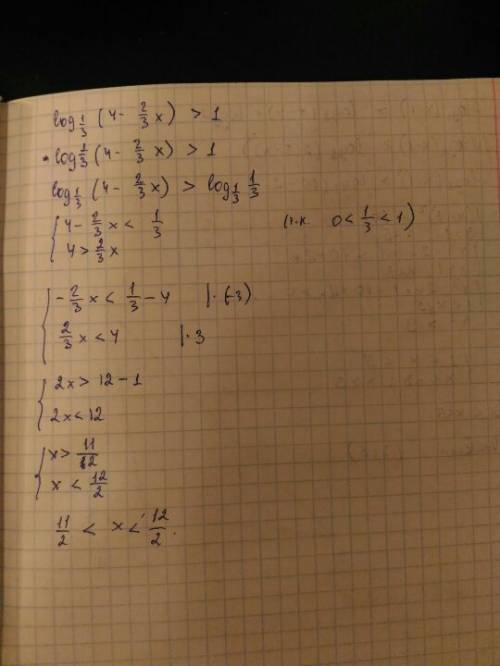 log_{1/3} (4 - 2/3 x) > 1
log_{1/3} (4 - 2/3 x) > 1
log_{1/3} (4 - 2/3 x) > log_{1/3} 1/3
{ 4 - 2/3 x < 1/3 (т.к. 0 < 1/3 < 1)
4 > 2/3 x
{ - 2/3 x < 1/3 - 4 |· (-3)
2/3 x < 4 |· 3
{ 2x > 12 - 1
2x < 12
{ x > 11/2
x < 12/2
11/2 < x < 12/2.